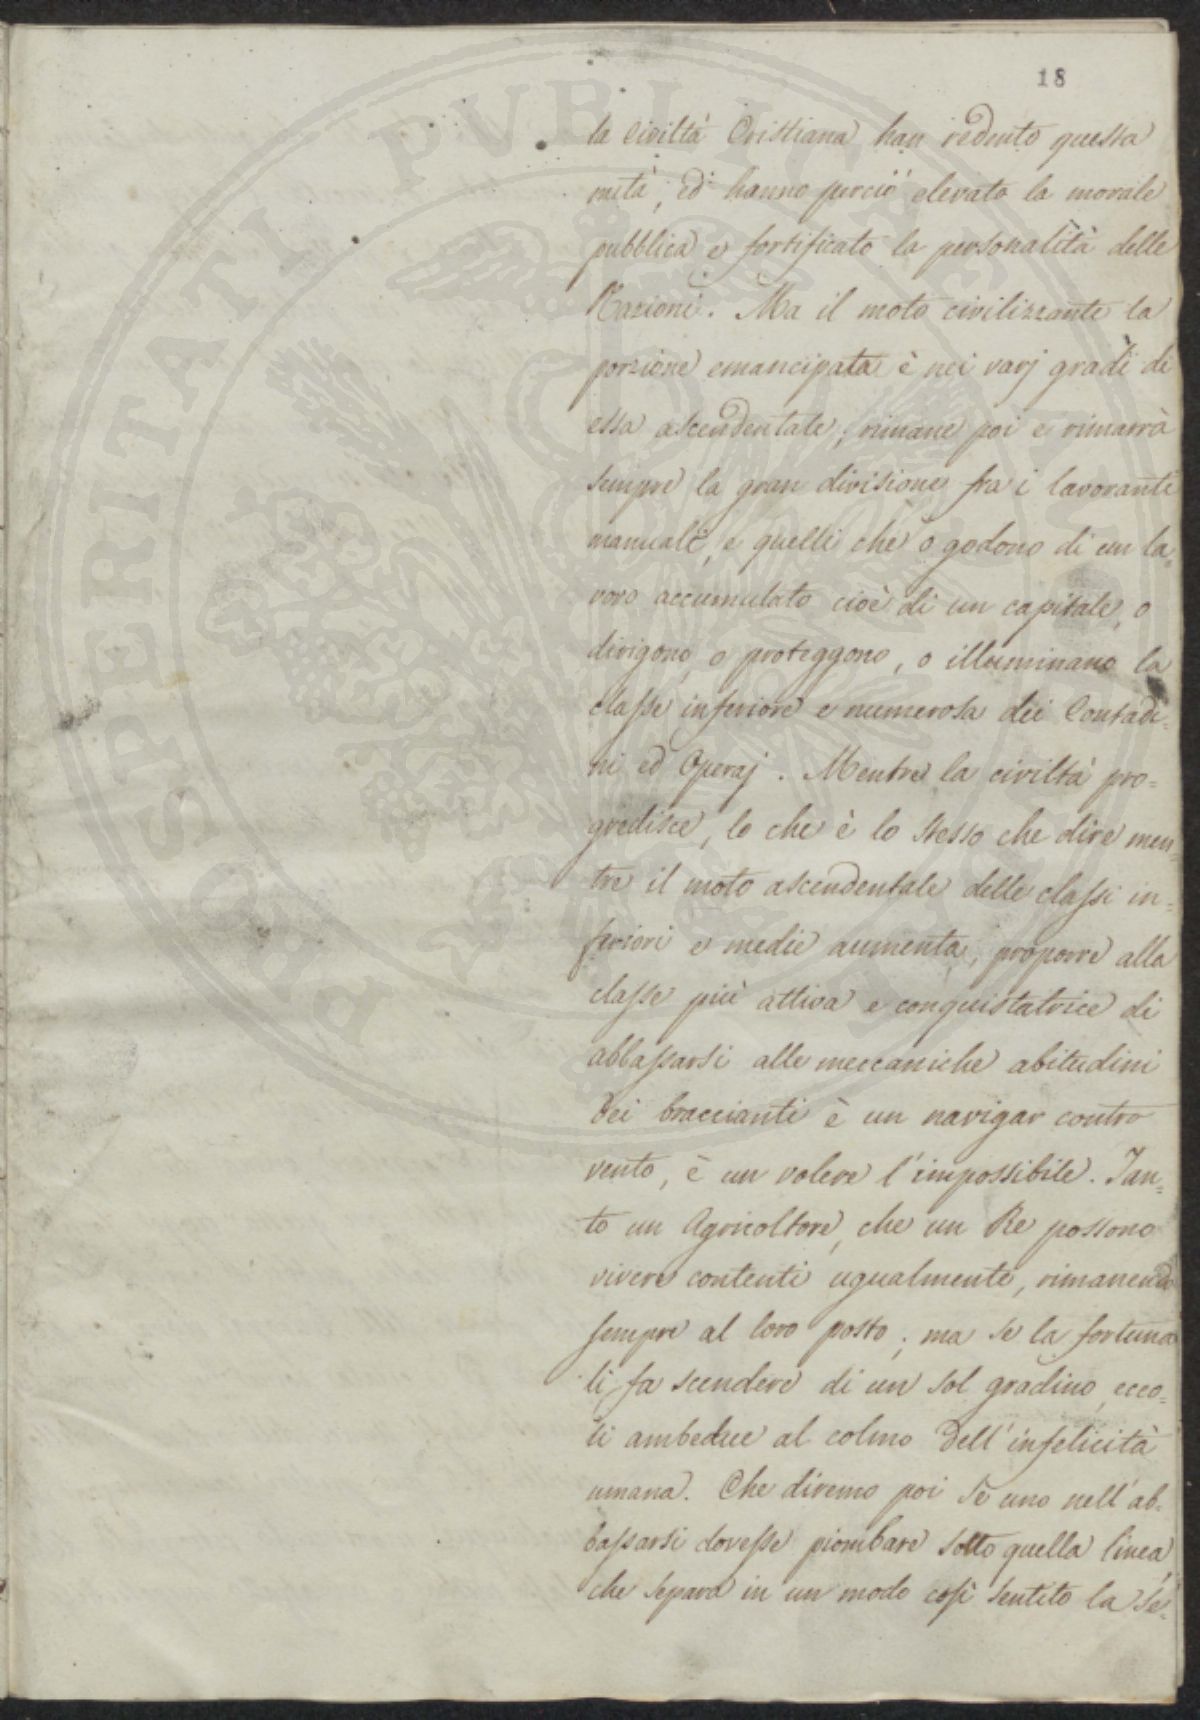 18
la Civiltà Cristiana han redento questa
metà, ed hanno perciò elevato la morale
pubblica e fortificato la personalità delle
Nazioni. Ma il moto civilizzante la
porzione emancipata è nei varj gradi di
essa ascendentale; rimane poi e rimarrà
sempre la gran divisione fra i lavoranti
manuali, e quelli che o godono di un la=
voro accumulato cioè di un capitale, o
dirigono, o proteggono, o illuminano la
classe inferiore e numerosa dei Contadi=
ni ed Operaj. Mentre la civiltà pro=
gredisce, lo che è lo stesso che dire men=
tre il moto ascendentale delle classi in=
feriori e medie aumenta, proporre alla
classe più attiva e conquistatrice di
abbassarsi alle meccaniche abitudini
dei braccianti è un navigar contro
vento, è un volere l'impossibile. Tan=
to un Agricoltore, che un Re possono
vivere contenti ugualmente, rimanendo
sempre al loro posto; ma se la fortuna
li fa scendere di un sol gradino, ecco=
li ambedue al colmo dell'infelicità
umana. Che diremo poi se uno nell'ab=
bassarsi dovesse piombare sotto quella linea,
che separa in un modo così sentito la se=
PROSPERITATI PUBLICAE